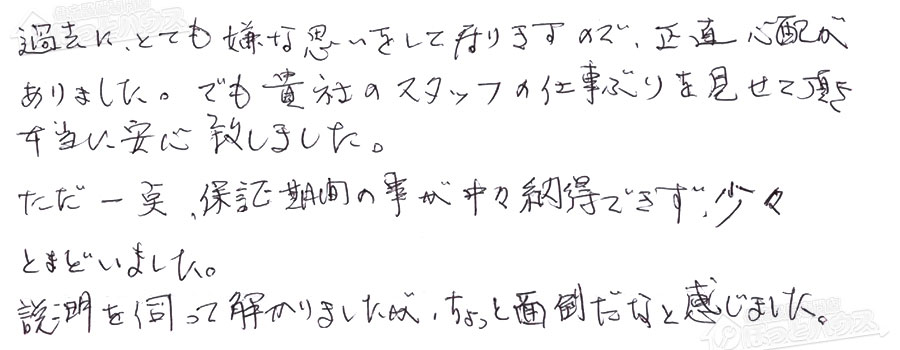 過去に、とても嫌な思いをして有りますので、正直心配が
ありました。でも貴社のスタッフの仕事ぶりを見せて頂き
本当に安心致しました。
ただ一点、保証期間の事が中々納得できず、少々
とまどいました。
説明を伺って解かりましたが、ちょっと面倒だなと感じました。